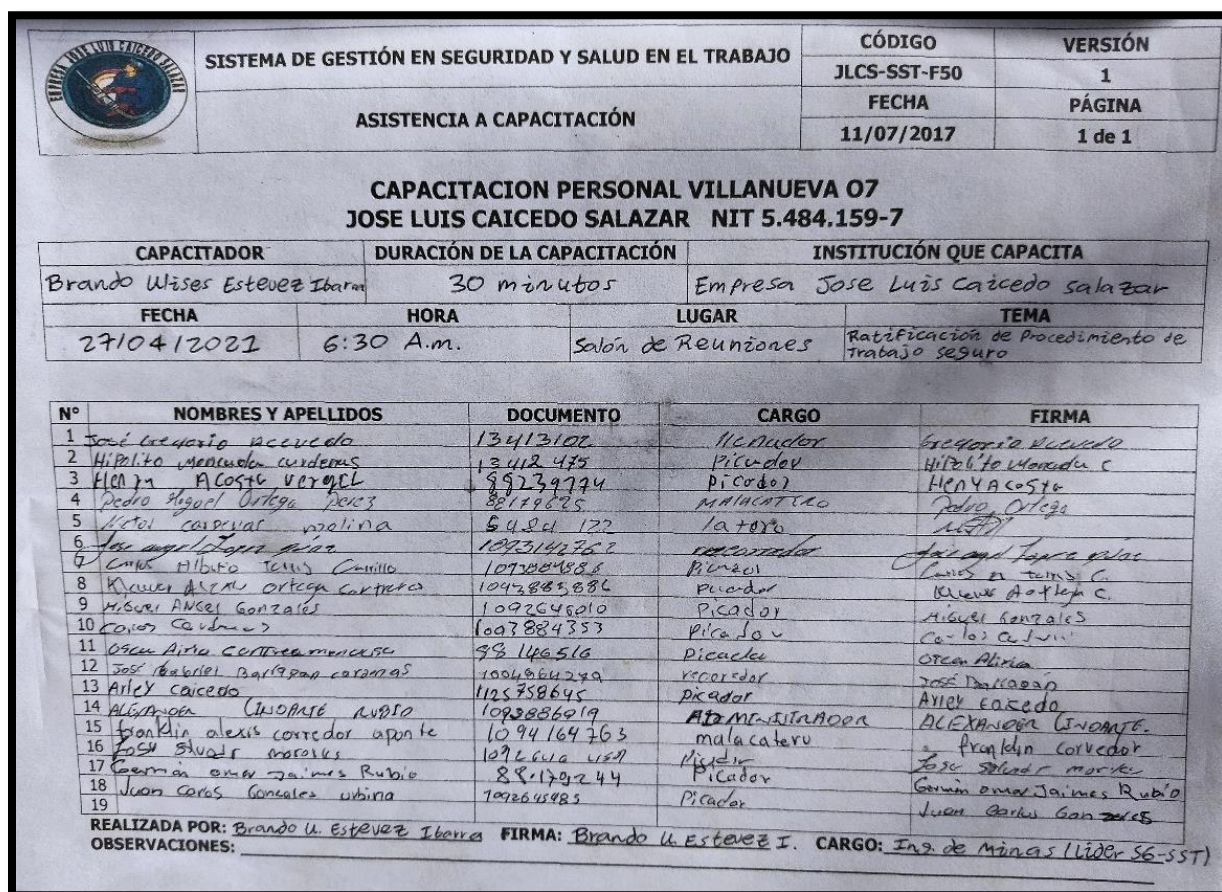 EMPRESA JOSE LUIS CAICEDO SALAZAR
SISTEMA DE GESTIÓN EN SEGURIDAD Y SALUD EN EL TRABAJO
CÓDIGO VERSIÓN
JLCS-SST-F50 1
ASISTENCIA A CAPACITACIÓN
FECHA PÁGINA
11/07/2017 1 de 1
CAPACITACION PERSONAL VILLANUEVA O7
JOSE LUIS CAICEDO SALAZAR NIT 5.484.159-7
CAPACITADOR DURACIÓN DE LA CAPACITACIÓN INSTITUCIÓN QUE CAPACITA
Brando Ulises Estevez Ibarra 30 minutos Empresa Jose Luis Caicedo Salazar
FECHA HORA LUGAR TEMA
27/04/2021 6:30 A.m. Salón de Reuniones Ratificación de Procedimiento de
Trabajo seguro
N° NOMBRES Y APELLIDOS DOCUMENTO CARGO FIRMA
1 José Gregorio Acevedo 13413102 Gregorio Acevedo
2 Hipolito Moncada Cardenas 13412475 Picador Hipolito Moncada C
3 Henry Acosta Vergel 88239774 Picador Henry Acosta
4 Pedro Miguel Ortega Perez 88179625 Pedro Ortega
5 molina 5484 122
6 Jose angel Lopez 1093142762 Jose angel Lopez
7 Carlos Alberto Carrillo Picador Carlos C.
8 Ortega Contreras 1093885886 Picador C.
9 Miguel ANGel Gonzales 1092646010 Picador Miguel Gonzales
10 Carlos Cardenas 1093884353 Picador Carlos
11 Oscar 88146516 Picador Oscar
12 José Gabriel Barragan recorredor José Barragán
13 Arley caicedo 1125758645 Picador Arley caicedo
14 ALEXANDER LINDARTE RUBIO 1093886919 ADMINISTRADOR ALEXANDER LINDARTE.
15 franklin alexis corredor aponte 1094164763 malacatero franklin corredor
16 Jose Picador Jose
17 German omar Jaimes Rubio 88.179244 Picador German omar Jaimes Rubio
18 Juan Carlos Gonzales urbina 1092645985 Picador Juan Carlos Gonzales
19
REALIZADA POR: Brando U. Estevez Ibarra FIRMA: Brando U. Estevez I. CARGO: Ing. de Minas (Lider SG-SST)
OBSERVACIONES: